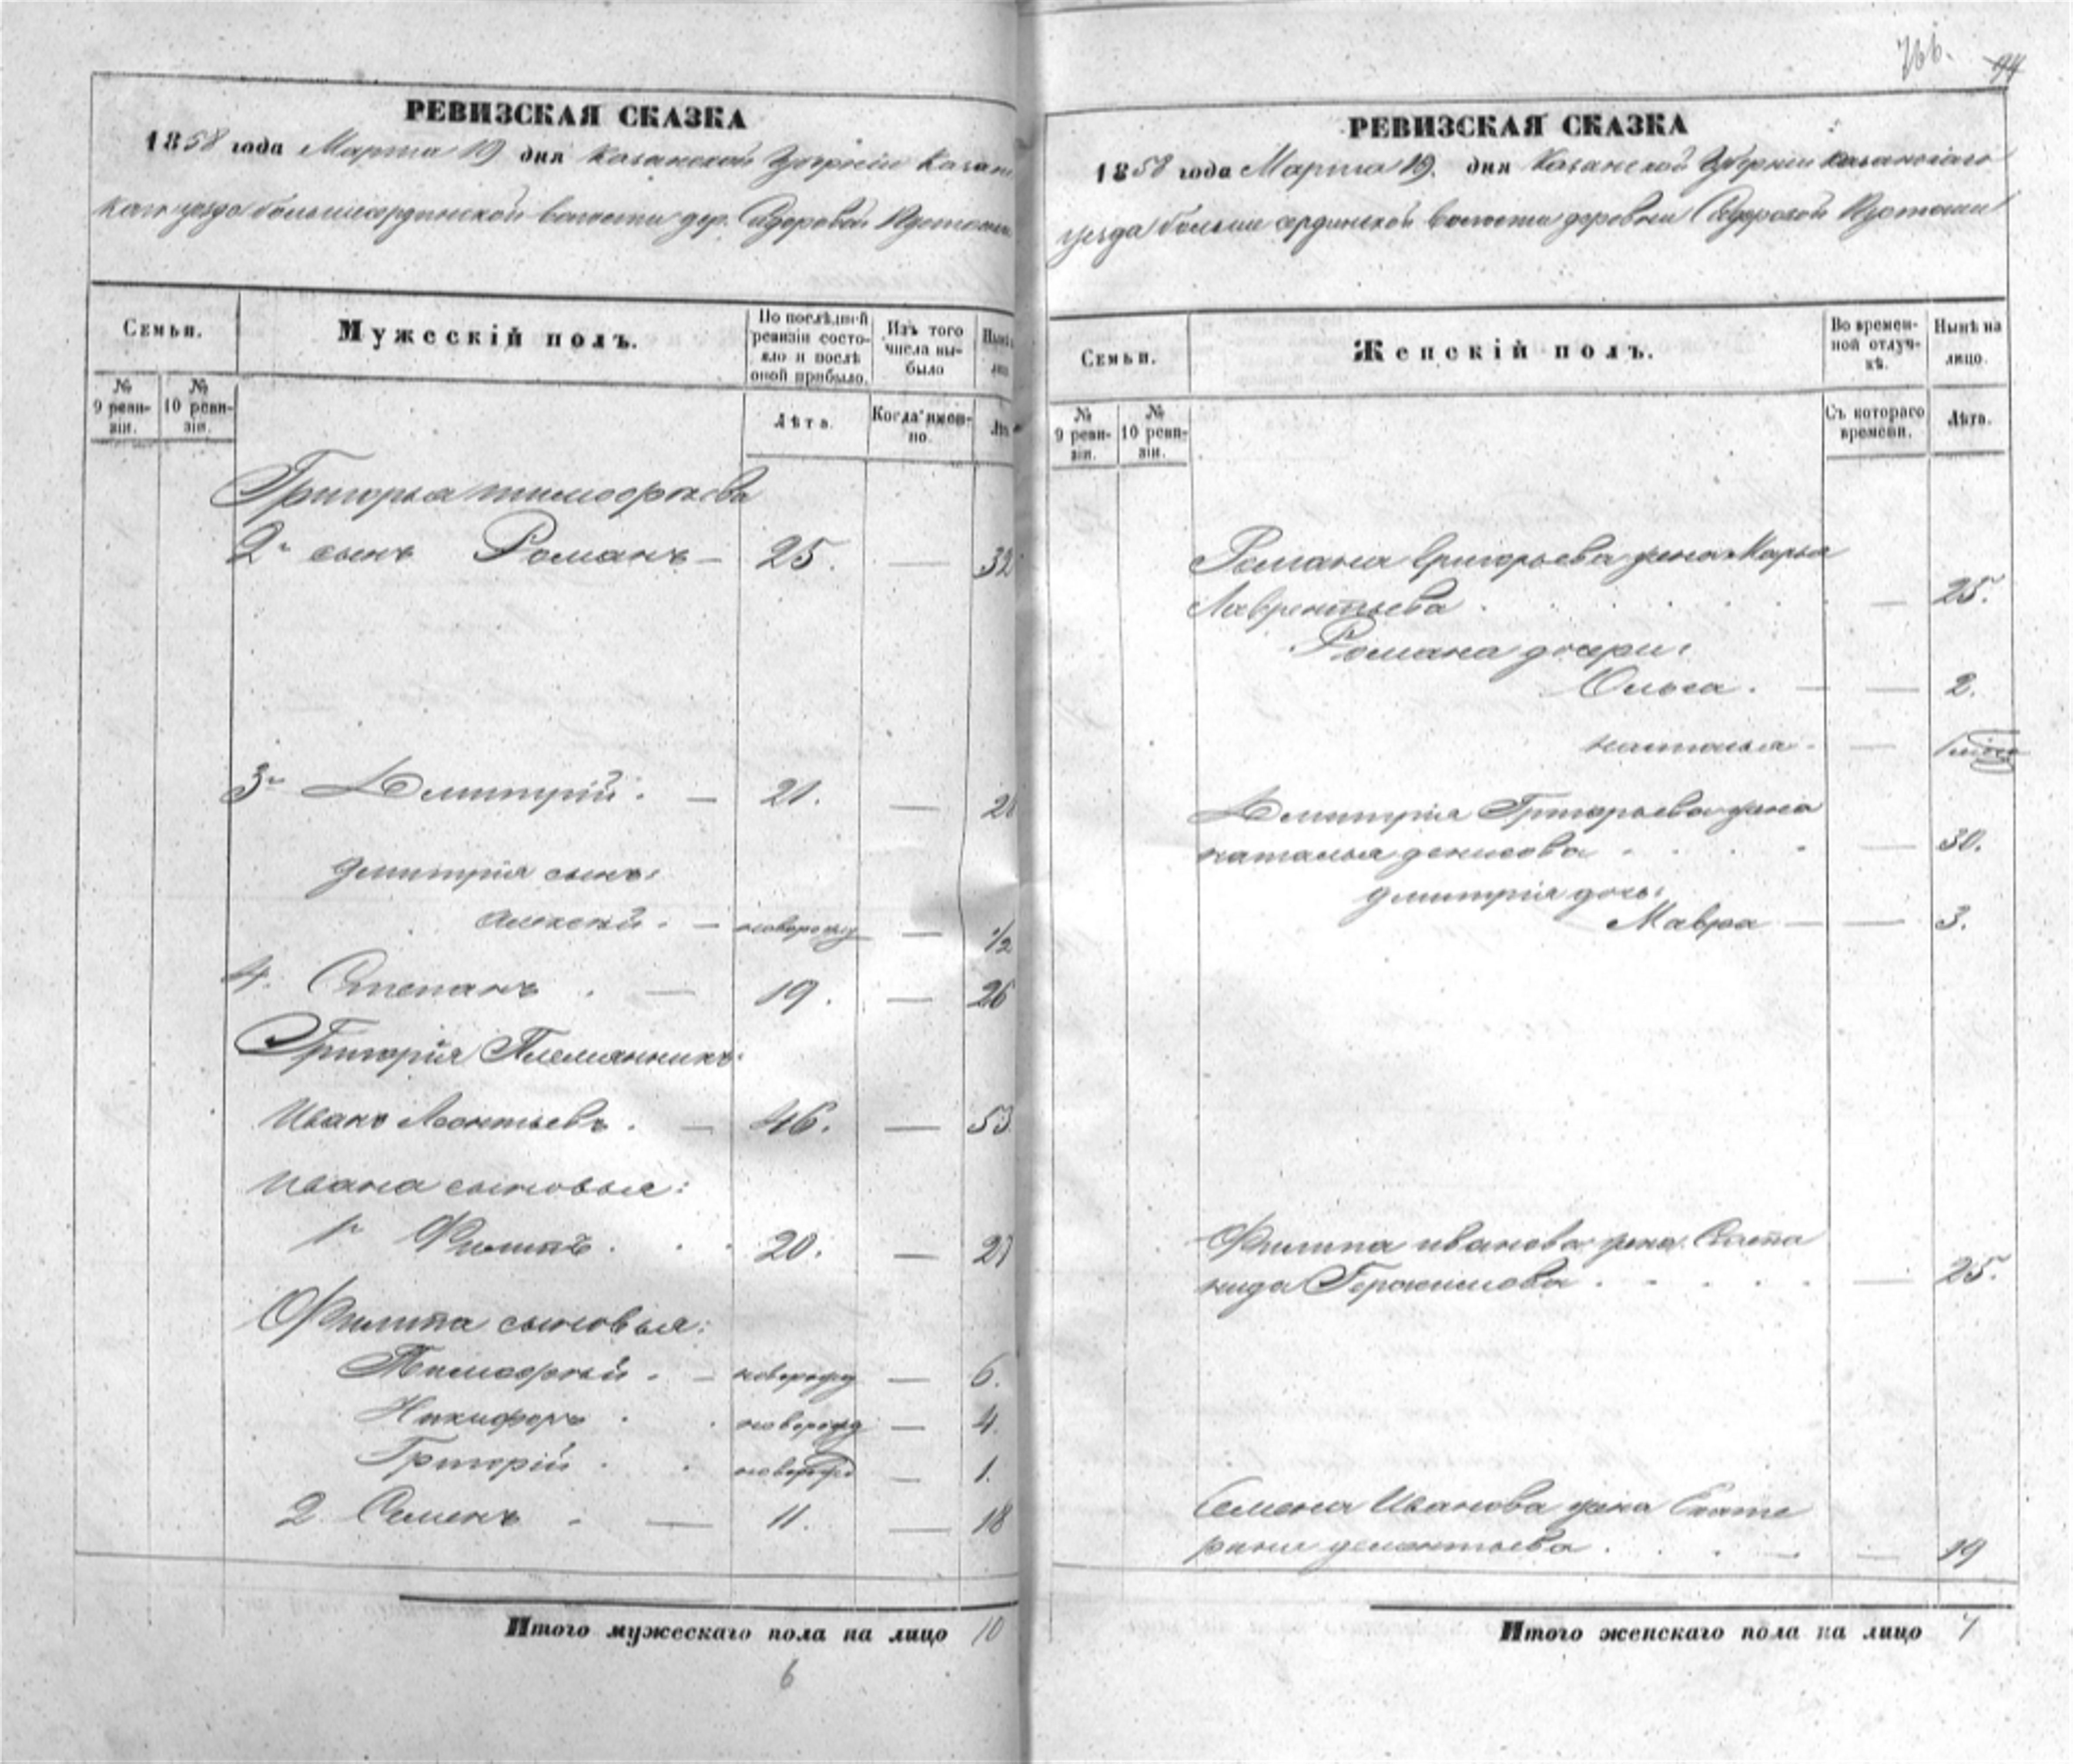 РЕВИЗСКАЯ СКАЗКА
1858 года Марта 19 дня Казанской Губерніи Казан
скаго уезда больше сердинской волости дер. Сидоровой Пустоши
Семьи.
Мужескій полъ.
По послѣдней ревизіи состояло и послѣ оной прибыло.
Изъ того числа выбыло
Нынѣ
№ 9 ревизіи.
№ 10 ревизіи.
Лѣта.
Когда именно.
Григорья тимофѣева
2й сынъ Романъ — 25. — 32
3й Дмитрій. — 21. — 28
дмитрія сынъ:
алексѣй. — новорожд — 1/2
4. Степанъ. — 19. — 26
Григорія Племянникъ:
Иванъ Леонтьевъ. — 46. — 53
Ивана сыновья:
1й Филипъ. 20. — 27
Филипа сыновья:
Тимофѣй. — новорожд — 6.
Никифоръ. новорожд — 4.
Григорій. новорожд — 1.
2 Семенъ — 11. — 18
Итого мужескаго пола на лицо 10
6
766.
94
РЕВИЗСКАЯ СКАЗКА
1858 года Марта 19. дня Казанской Губерніи казанскаго
уезда больше сердинской волости деревни Сидоровой Пустоши
Семьи.
Женскій полъ.
Во временной отлучкѣ.
Нынѣ на лицо.
№ 9 ревизіи.
№ 10 ревизіи.
Съ котораго времени.
Лѣта.
Романа Григорьева жена Марья
Лаврентьева. — 25.
Романа дочери:
Ольга. — — 2.
наталья. —
Дмитрія Григорьева жена
наталья денисова — 30.
дмитрія дочь:
Мавра — — 3.
Филипа иванова жена Степа
нида Герасимова — 25.
Семена Иванова жена Екате
рина дементьева. — — 19
Итого женскаго пола на лицо 7